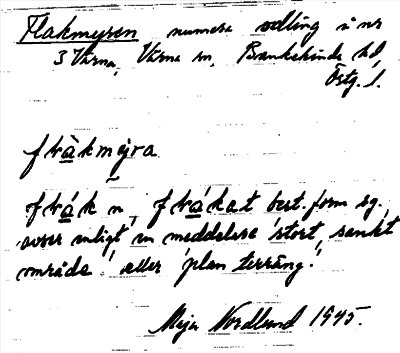 Flakmyren numera odling å nr
3 Värna, Värna sn, Bankekinds hd,
Östg. l.
flàkmýra
flák n, flákat best. form sg.,
avser enligt en meddelare 'stort, sankt
område', eller 'plan terräng'.
Meja Nordlund 1945.